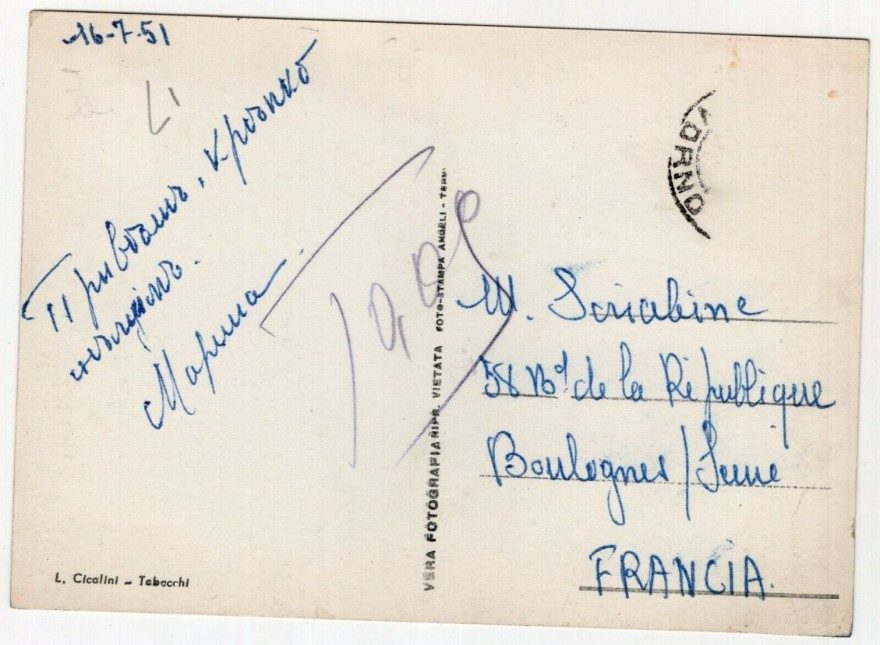 16-7-51
Привѣтъ, крѣпко
цѣлую.
Марина
L. Cicalini - Tabacchi
VERA FOTOGRAFIA RIPR. VIETATA FOTO-STAMPA ANGELI - TERNI
ORNO
M. Scriabine
58 Bd de la République
Boulogne s/Seine
FRANCIA.